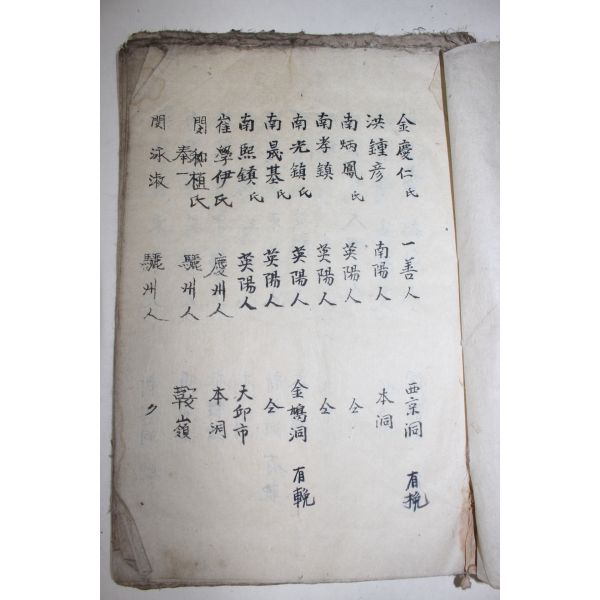 金慶仁氏 一善人 西京洞 有挽
洪鍾彦 南陽人 本洞
南炳鳳氏 英陽人 仝
南孝鎮 英陽人 仝
南光鎮氏 英陽人 金鶏洞 有輓
南晟基氏 英陽人 仝
南熙鎮氏 英陽人 大邱市
崔學伊氏 慶州人 本洞
閔植氏 奉一 驪州人 鞍嶺
閔泳淑 驪州人 〃